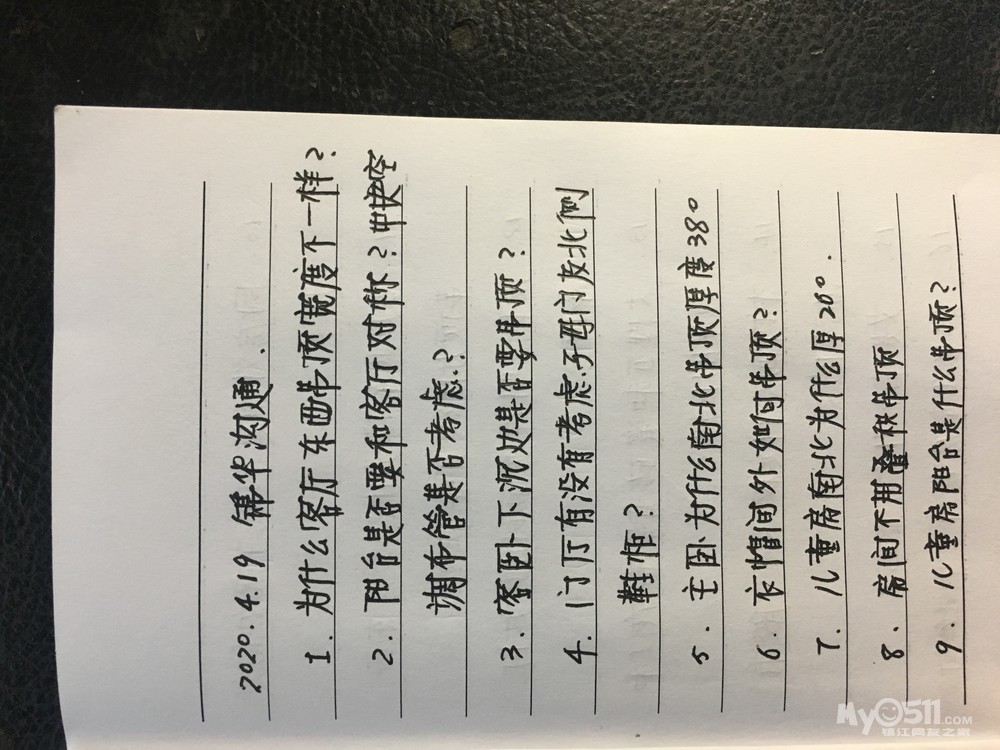 2020.4.19 锦华沟通.
1. 为什么客厅东西带顶宽度不一样?
2. 阳台是否要和客厅对称?中央空
调布管是否考虑.?
3. 客卧下沉处是否要带顶?
4. 门厅有没有考虑子母门及北侧
鞋柜?
5. 主卧为什么南北带顶厚度380
6. 衣帽间外如何带顶?
7. 儿童房南北为什么厚200.
8. 房间不用叠级带顶
9. 儿童房阳台是什么带顶?
My0511.COM
镇江网友之家